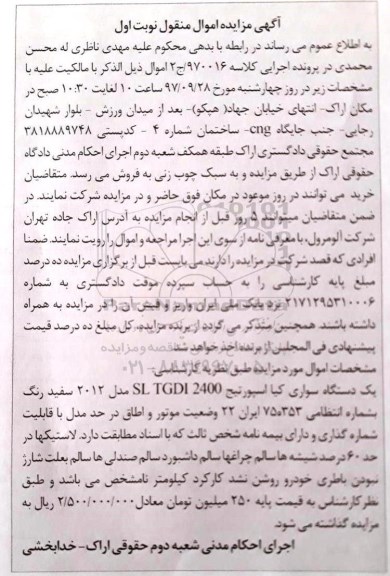 آگهی مزایده اموال منقول نوبت اول
به اطلاع عموم می رساند در رابطه با بدهی محکوم علیه مهدی ناظری له محسن
محمدی در پرونده اجرایی کلاسه ۹۷۰۰۱۶/ج۲ اموال ذیل الذکر با مالکیت علیه با
مشخصات زیر در روز چهارشنبه مورخ ۹۷/۰۹/۲۸ ساعت ۱۰ لغایت ۱۰:۳۰ صبح در
مکان اراک- انتهای خیابان جهاد( هپکو)- بعد از میدان ورزش - بلوار شهیدان
رجایی- جنب جایگاه cng- ساختمان شماره ۴ - کدپستی ۳۸۱۸۸۸۹۷۴۸
مجتمع حقوقی دادگستری اراک طبقه همکف شعبه دوم اجرای احکام مدنی دادگاه
حقوقی اراک از طریق مزایده و به سبک چوب زنی به فروش می رسد. متقاضیان
خرید می توانند در روز موعود در مکان فوق حاضر و در مزایده شرکت نمایند. در
ضمن متقاضیان میتوانند ۵ روز قبل از انجام مزایده به آدرس اراک جاده تهران
شرکت آلومرول، با معرفی نامه از سوی این اجرا مراجعه و اموال را رویت نمایند. ضمنا
افرادی که قصد شرکت در مزایده را دارند می بایست قبل از برگزاری مزایده ده درصد
مبلغ پایه کارشناسی را به حساب سپرده موقت دادگستری به شماره
۲۱۷۱۲۹۵۳۱۰۰۰۶ نزد بانک ملی ایران واریز و فیش آن را در مزایده به همراه
داشته باشند. همچنین متذکر می گردد از برنده مزایده، کل مبلغ ده درصد قیمت
پیشنهادی فی المجلس از برنده اخذ خواهد شد.
مشخصات اموال مورد مزایده طبق نظریه کارشناسی-
یک دستگاه سواری کیا اسپورتیج SL TGDI 2400 مدل ۲۰۱۲ سفید رنگ
بشماره انتظامی ۳۵۳د۷۵ ایران ۲۲ وضعیت موتور و اطاق در حد مدل با قابلیت
شماره گذاری و دارای بیمه نامه شخص ثالث که با اسناد مطابقت دارد. لاستیکها در
حد ۶۰ درصد شیشه ها سالم چراغها سالم داشبورد سالم صندلی ها سالم بعلت شارژ
نبودن باطری خودرو روشن نشد کارکرد کیلومتر نامشخص می باشد و طبق
نظر کارشناس به قیمت پایه ۲۵۰ میلیون تومان معادل۲/۵۰۰/۰۰۰/۰۰۰ ریال به
مزایده گذاشته می شود.
اجرای احکام مدنی شعبه دوم حقوقی اراک- خدابخشی